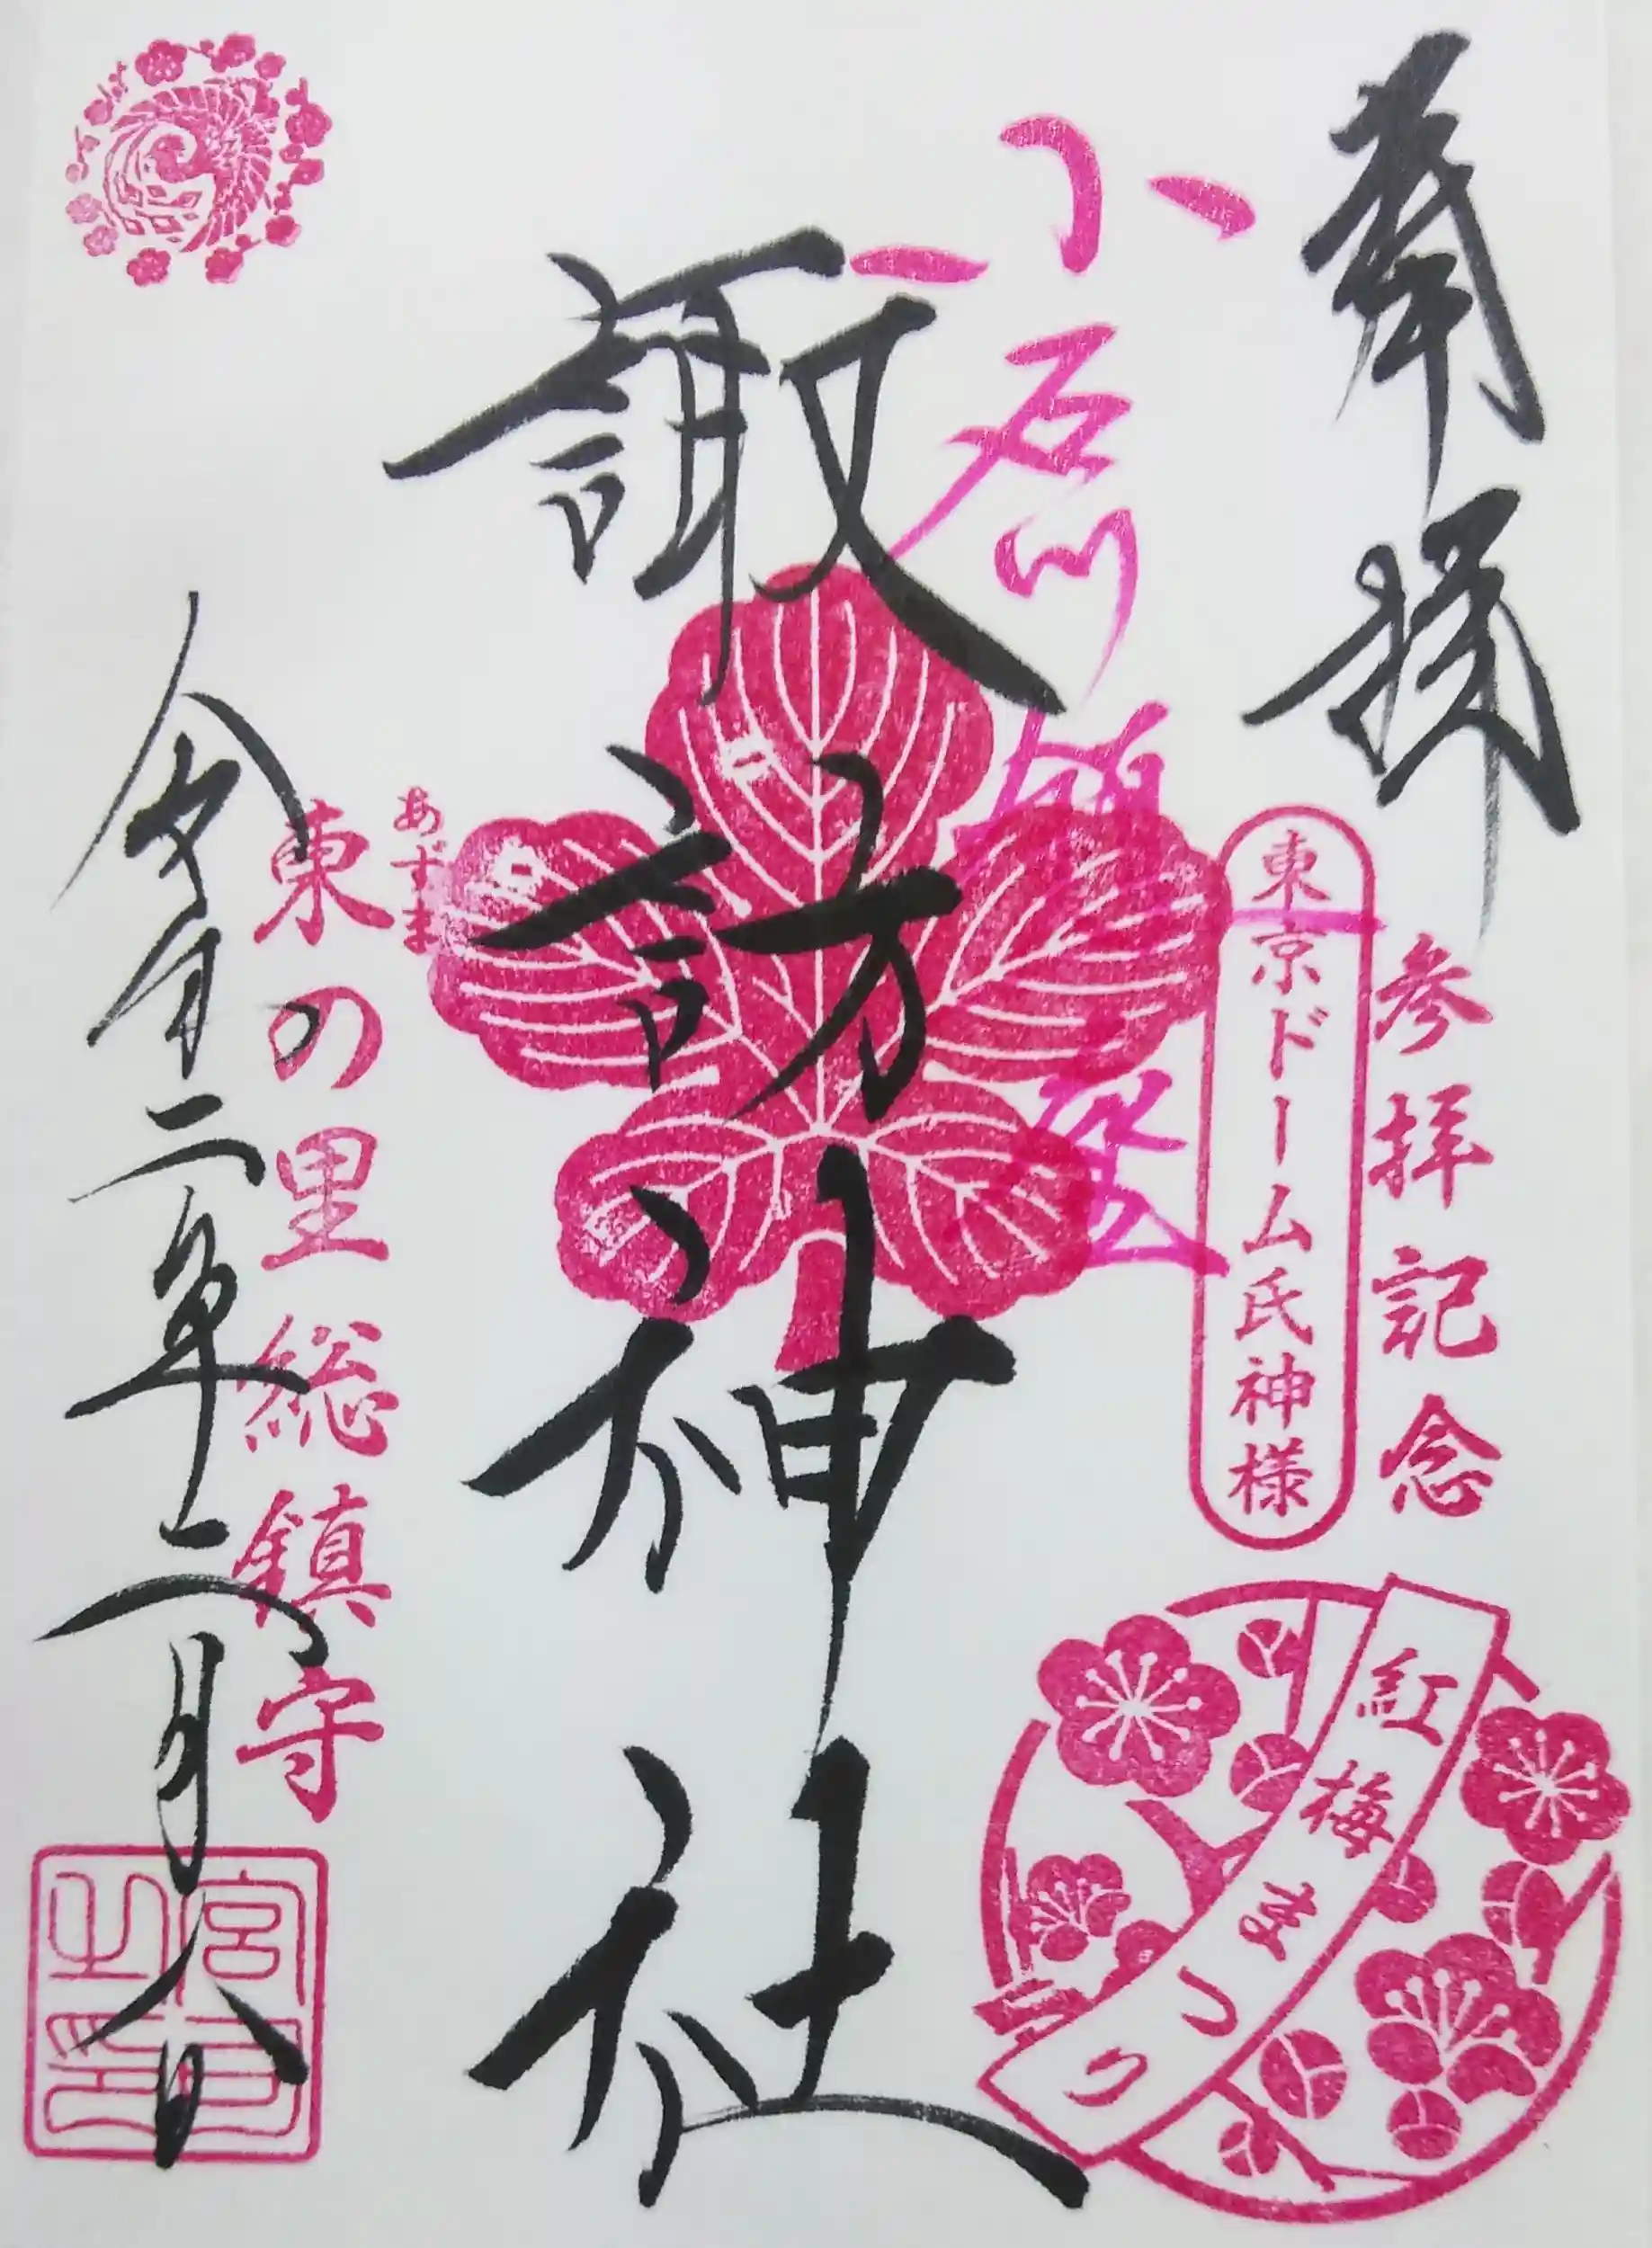 奉拝
参拝記念
東京ドーム氏神様
紅梅まつり
小石川
諏訪神社
あずま
東の里総鎮守
令和二年二月八日
宮司之印